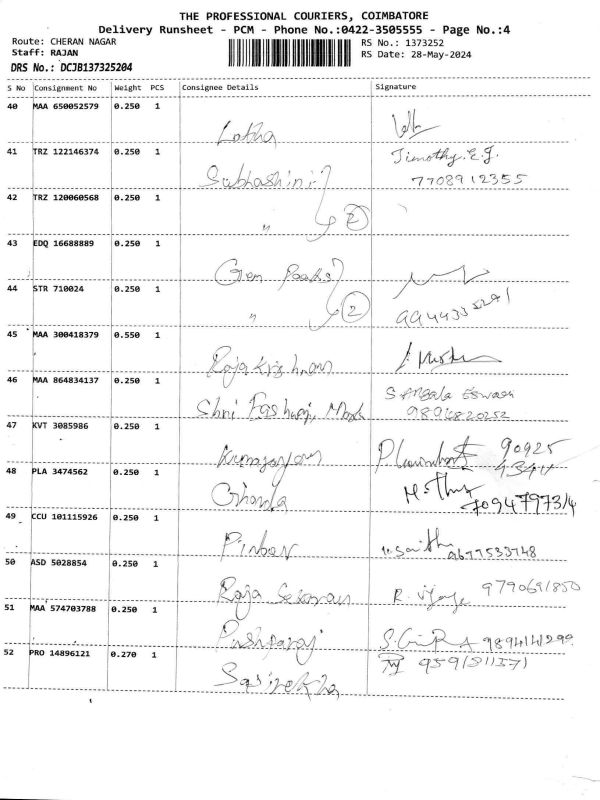 THE PROFESSIONAL COURIERS, COIMBATORE
Delivery Runsheet - PCM - Phone No.:0422-3505555 - Page No.:4
Route: CHERAN NAGAR
RS No.: 1373252
Staff: RAJAN
RS Date: 28-May-2024
DRS No.: DCJB137325204
S No Consignment No Weight PCS Consignee Details Signature
40 MAA 650052579 0.250 1
Latha
41 TRZ 122146374 0.250 1 Timothy.E.J.
Subhashini 7708912355
42 TRZ 120060568 0.250 1
" 2
43 EDQ 16688889 0.250 1
Gem Pooks
44 STR 710024 0.250 1
" 2 9944335291
45 MAA 300418379 0.550 1
Raja Krishnan
46 MAA 864834137 0.250 1
Shri
47 KVT 3085986 0.250 1
90925
48 PLA 3474562 0.250 1
7094797314
49 CCU 101115926 0.250 1
9677533748
50 ASD 5028854 0.250 1
Raja Sekaran R. 9790691850
51 MAA 574703788 0.250 1
Pushparaj
52 PRO 14896121 0.270 1
Sasirekha